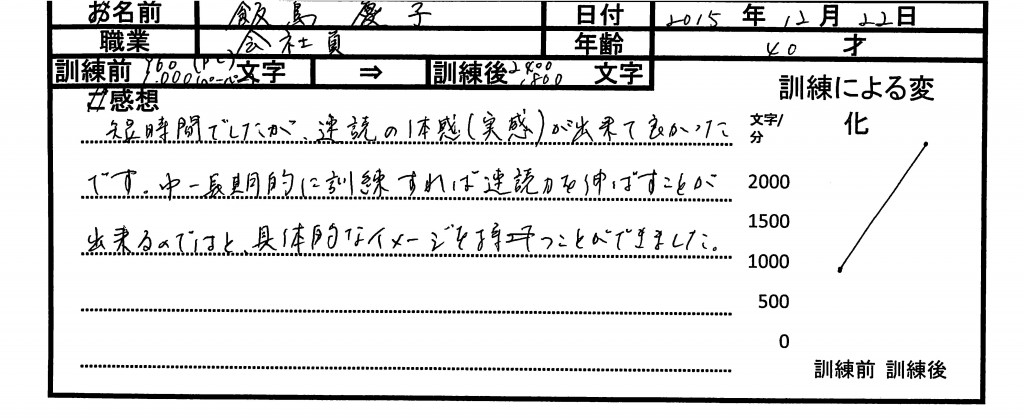 お名前 飯島 慶子 日付 2015年12月22日
職業 会社員 年齢 40才
訓練前 960 (PC) 1,000 (ペーパー) 文字 ⇒ 訓練後 2400 1800 文字
感想
短時間でしたが、速読の体感(実感)が出来て良かった
です。中-長期的に訓練すれば速読力を伸ばすことが
出来るのではと、具体的なイメージを持つことができました。
訓練による変
化
文字/
分
2000
1500
1000
500
0
訓練前 訓練後